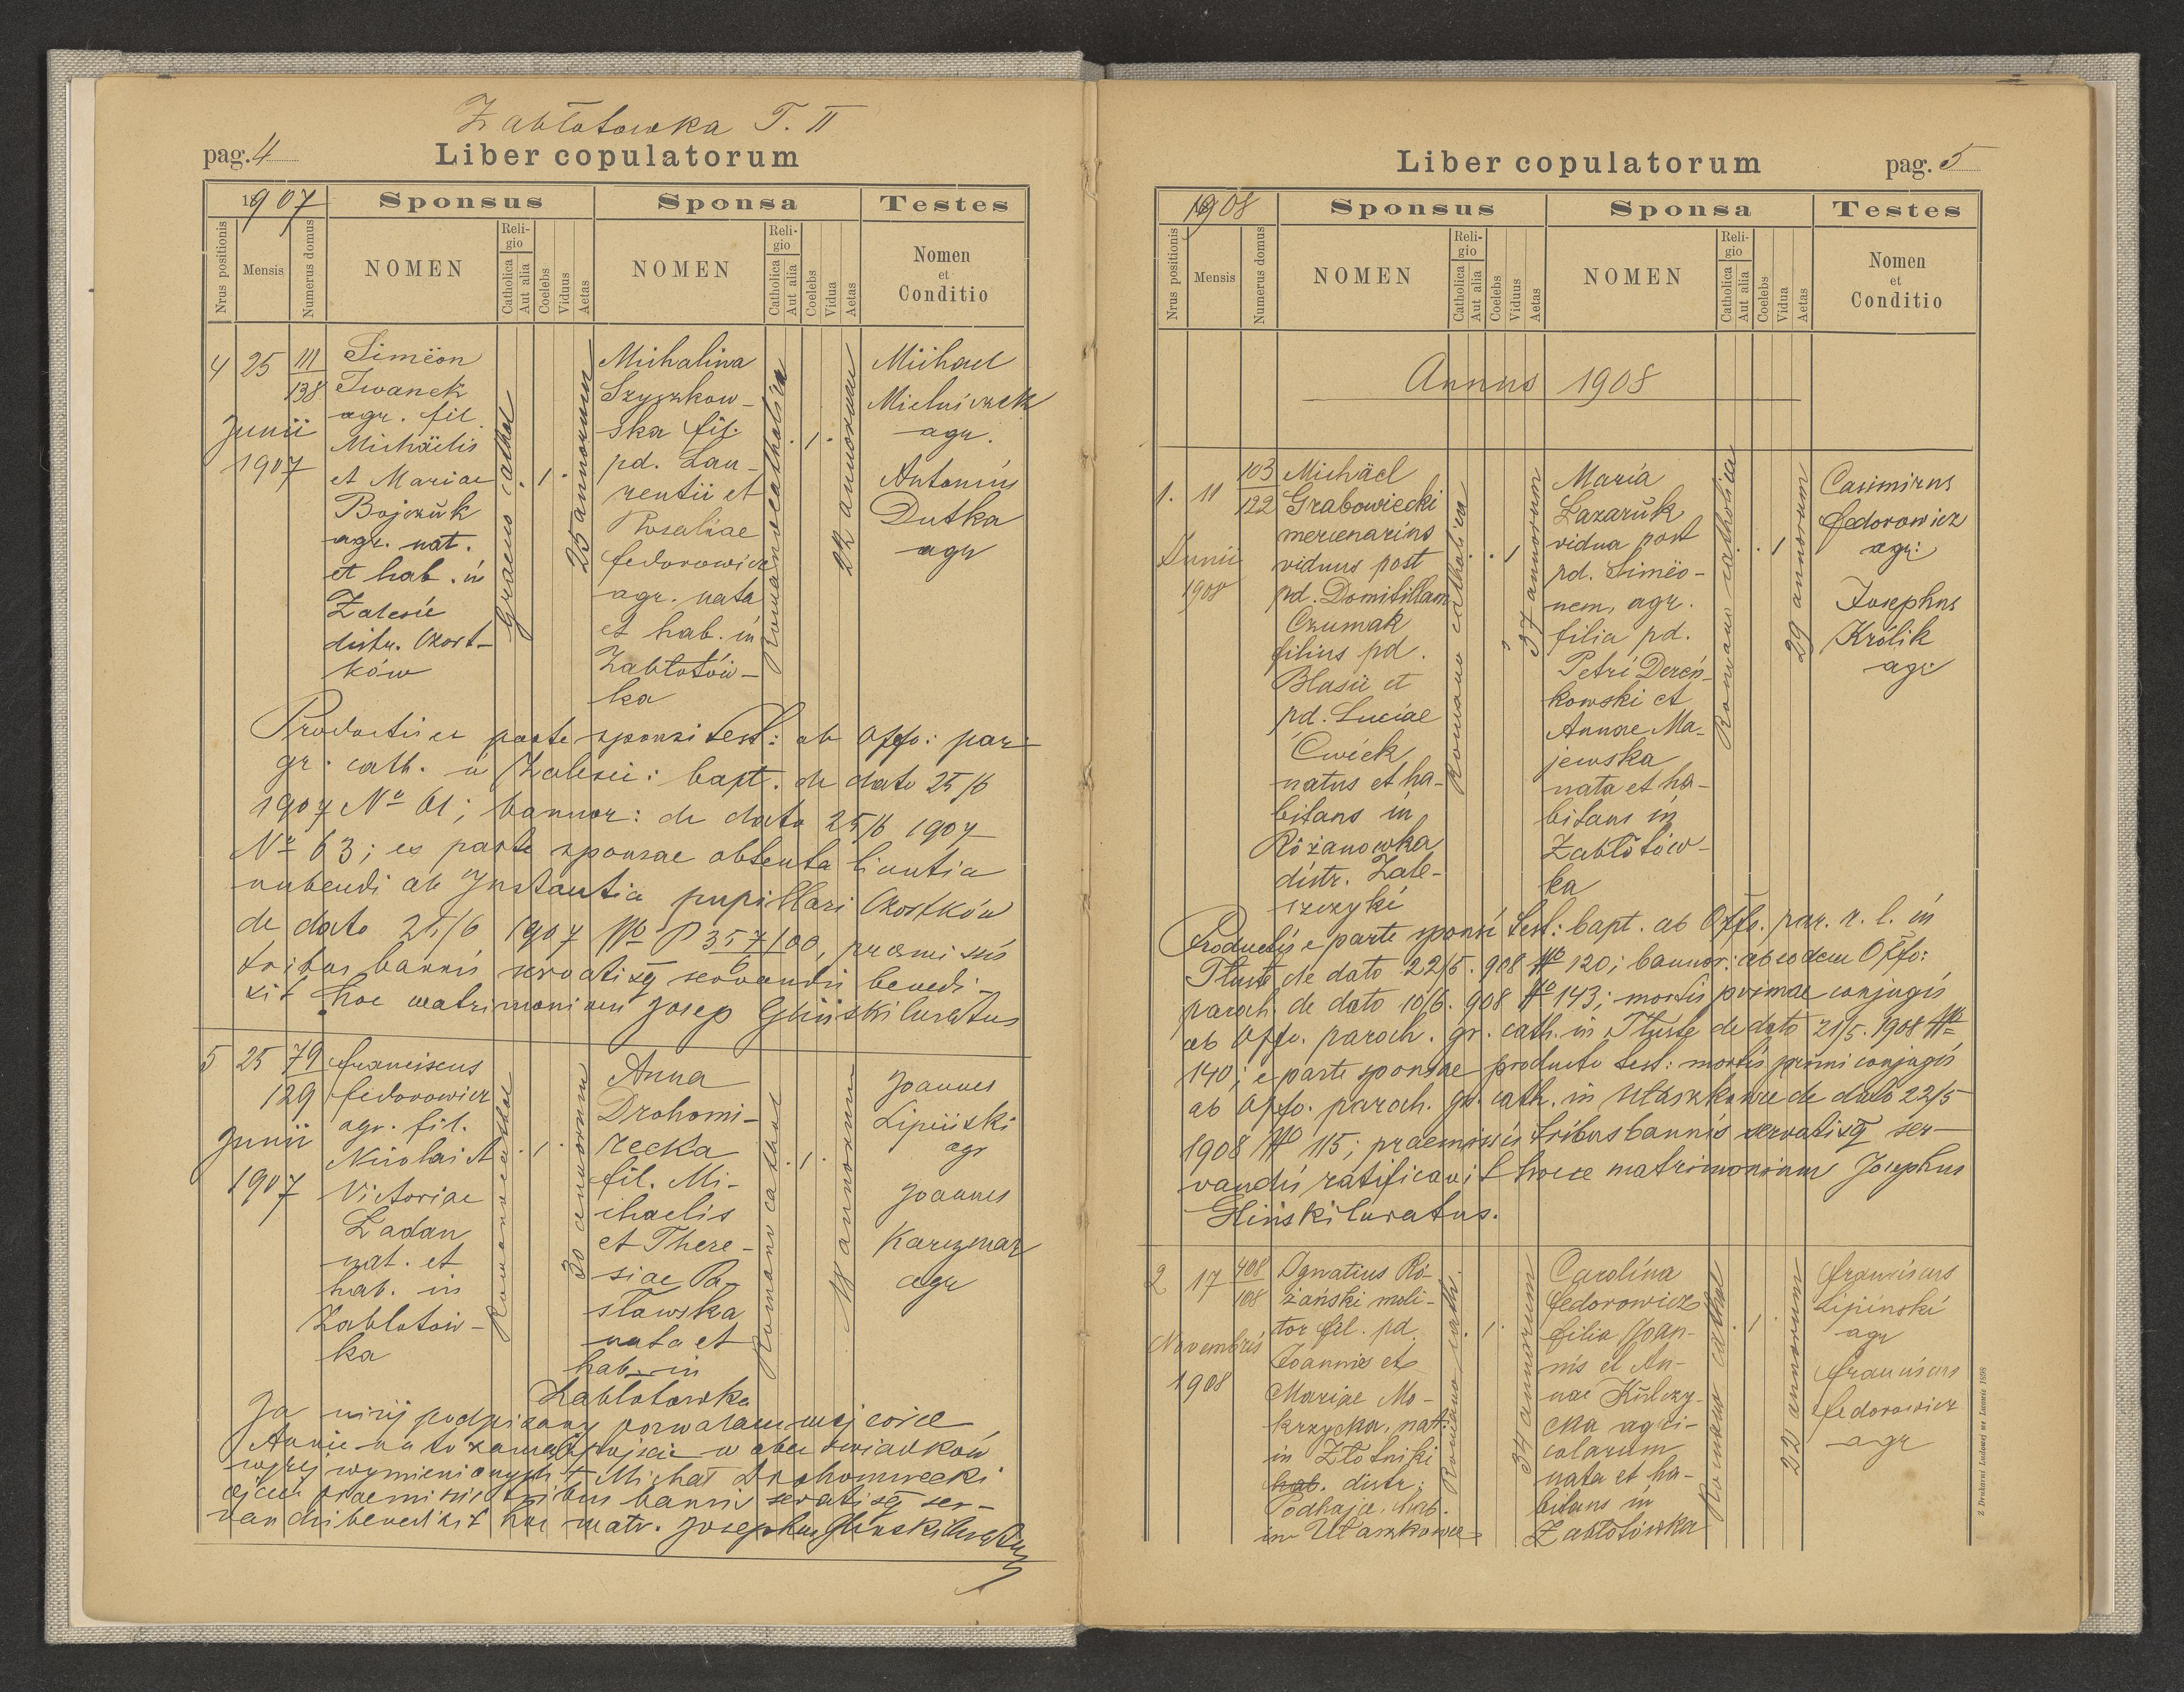 Zabłotowka T. II
pag. 4
Liber copulatorum
1907
Sponsus
Sponsa
Testes
Nrus positionis
Mensis
Numerus domus
NOMEN
Religio
Catholica
Aut alia
Coelebs
Viduus
Aetas
NOMEN
Religio
Catholica
Aut alia
Coelebs
Vidua
Aetas
Nomen
et
Conditio
4 25 111
138
Junii
1907
Simëon
Iwanek
agr. fil.
Michäelis
et Mariae
Bojczŭk
agr. nat.
et hab. in
Zalesie
distr. Czort-
ków
Graeco cathol
1
25 annorum
Michalina
Szyszkow-
ska fil.
pd. Lau-
rentii et
Rosaliae
Fedorowicz
agr. nata
et hab. in
Zabłotów-
ka
Romano catholica
1
22 annorum
Michael
Mielniczek
agr.
Antonius
Dutka
agr
Productis ex parte sponsi test: ab Offo: par
gr. cath. in Zalesie: bapt. de dato 25/6
1907 No 61; bannor: de dato 25/6 1907
No 63; ex parte sponsae obtenta licentia
nubendi ab Instantia pupillari Czortków
de dato 21/6 1907 No P 357/00, praemissis
6
tribus bannis servatisq servandis benedi-
xit hoc matrimonium Josep Gliński Curatus
5 25 79
129
Junii
1907
Franciscus
Fedorowicz
agr. fil.
Nicolai et
Victoriae
Ladan
nat. et
hab. in
Zablotów-
ka
Romano cathol
1
30 annorum
Anna
Drohomi-
recka
fil. Mi-
chaelis
et There-
siae Pa-
sławska
nata et
hab. in
Zablotowka
Romano cathol
1
18 annorum
Joannes
Lipiński
agr
Joannes
Karczmarz
agr
Ja niżej podpisany pozwalam mej córce
Annie na to zamążpójście w obec świadków
wyżej wymienionych + Michał Drohomirecki
ojciec praemissis tribus bannis servatisq ser-
vandis benedixit hoc matr. Josephus Gliński Curatus
Liber copulatorum
pag. 5
1908
Sponsus
Sponsa
Testes
Nrus positionis
Mensis
Numerus domus
NOMEN
Religio
Catholica
Aut alia
Coelebs
Viduus
Aetas
NOMEN
Religio
Catholica
Aut alia
Coelebs
Vidua
Aetas
Nomen
et
Conditio
Annus 1908
1. 11 103
122
Junii
1908
Michäel
Grabowiecki
mercenarius
viduus post
pd. Domitillam
Czumak
filius pd.
Blasii et
pd. Luciae
Ćwiek
natus et ha-
bitans in
Różanowka
distr. Zale-
szczyki
Romano catholica
1
37 annorum
Maria
Lazarŭk
vidua post
pd. Simëo-
nem, agr.
filia pd.
Petri Dereń-
kowski et
Annae Ma-
jewska
nata et ha-
bitans in
Zabłotów-
ka
Romano catholica
1
29 annorum
Casimirus
Fedorowicz
agr:
Josephus
Królik
agr
Productis e parte sponsi test: bapt. ab Offo. par. r. l. in
Tłuste de dato 22/5. 908 No 120; bannor: ab eodem Offo:
paroch. de dato 10/6. 908 No 143; mortis primae conjugis
ab Offo. paroch. gr. cath. in Tłuste de dato 21/5. 1908 No
140; e parte sponsae producto test: mortis primi conjugis
ab Offo. paroch. gr. cath. in Ułaszkowce de dato 22/5
1908 No 115; praemissis tribus bannis servatisq ser-
vandis ratificavit hocce matrimonium Josephus
Gliński Curatus.
2 17 408
108
Novembris
1908
Ignatius Ró-
żański moli-
tor fil. pd.
Joannis et
Mariae Mo-
krzycka, nat.
in Złotniki
hab. distr.
Podhajce, hab.
in Ułaszkowce
Romano cath.
1
34 annorum
Carolina
Fedorowicz
filia Joan-
nis et An-
nae Kŭlczy-
cka agri-
colarum
nata et ha-
bitans in
Zabłotówka
Romano cathol
1
22 annorum
Franciscus
Lipiński
agr
Franciscus
Fedorowicz
agr
Z Drukarni Ludowej we Lwowie 1898